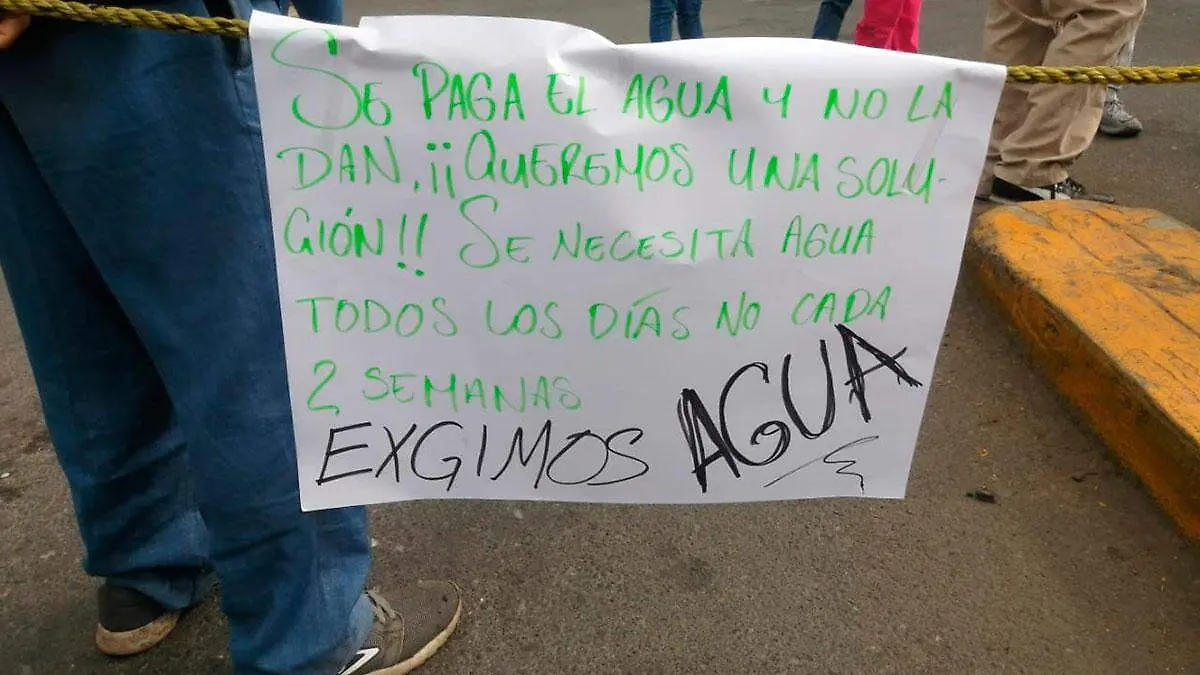 SE PAGA EL AGUA Y NO LA
DAN, ¡¡QUEREMOS UNA SOLU-
CIÓN!! SE NECESITA AGUA
TODOS LOS DÍAS NO CADA
2 SEMANAS
EXGIMOS AGUA